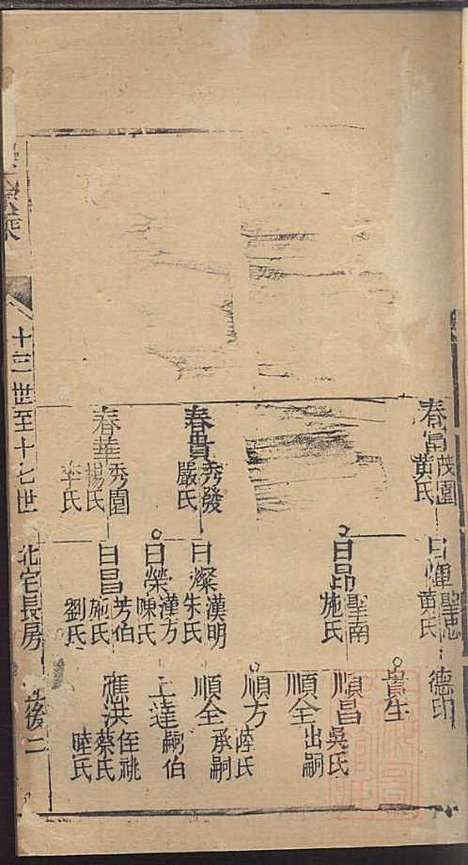 春富 茂園 黃氏
春貴 秀發 嚴氏
春華 秀園 楊氏 李氏
日煇 聖思 黃氏
日昂 聖南 施氏
日燦 漢明 朱氏
日榮 漢方 陳氏
日昌 芳伯 施氏 劉氏
德印
貴生
順昌 吳氏
順全 出嗣
順方 陸氏
順全 承嗣
上達 嗣伯
應洪 侄祧 蔡氏 陸氏
十三世至十七世
北宅長房
後二